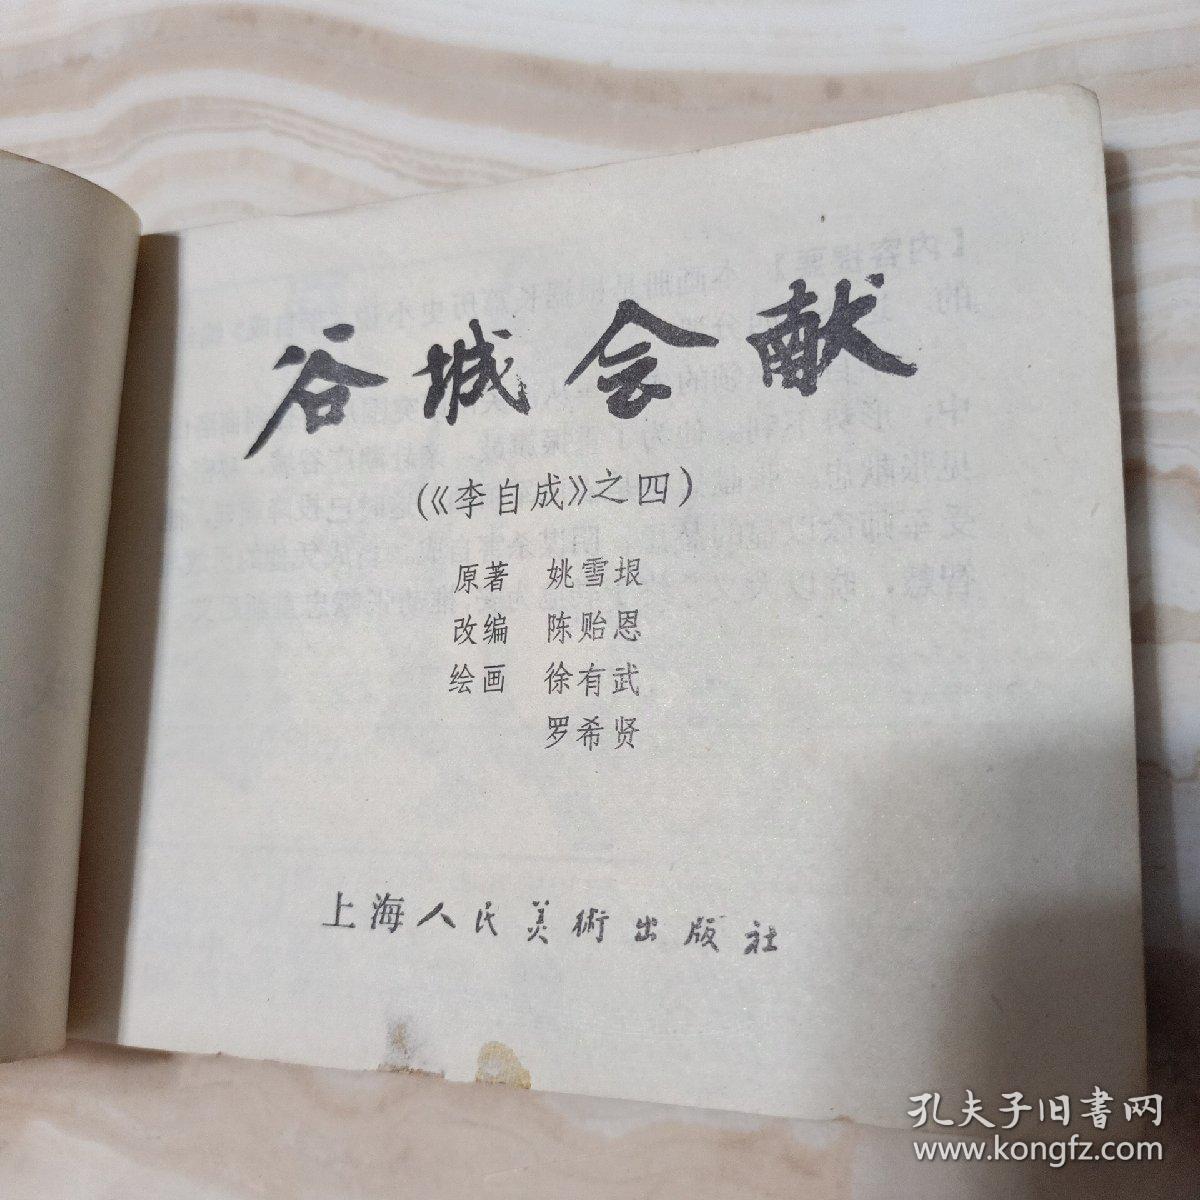 谷城会献
(《李自成》之四)
原著 姚雪垠
改编 陈贻恩
绘画 徐有武
罗希贤
上海人民美術出版社
孔夫子旧書网
www.kongfz.com